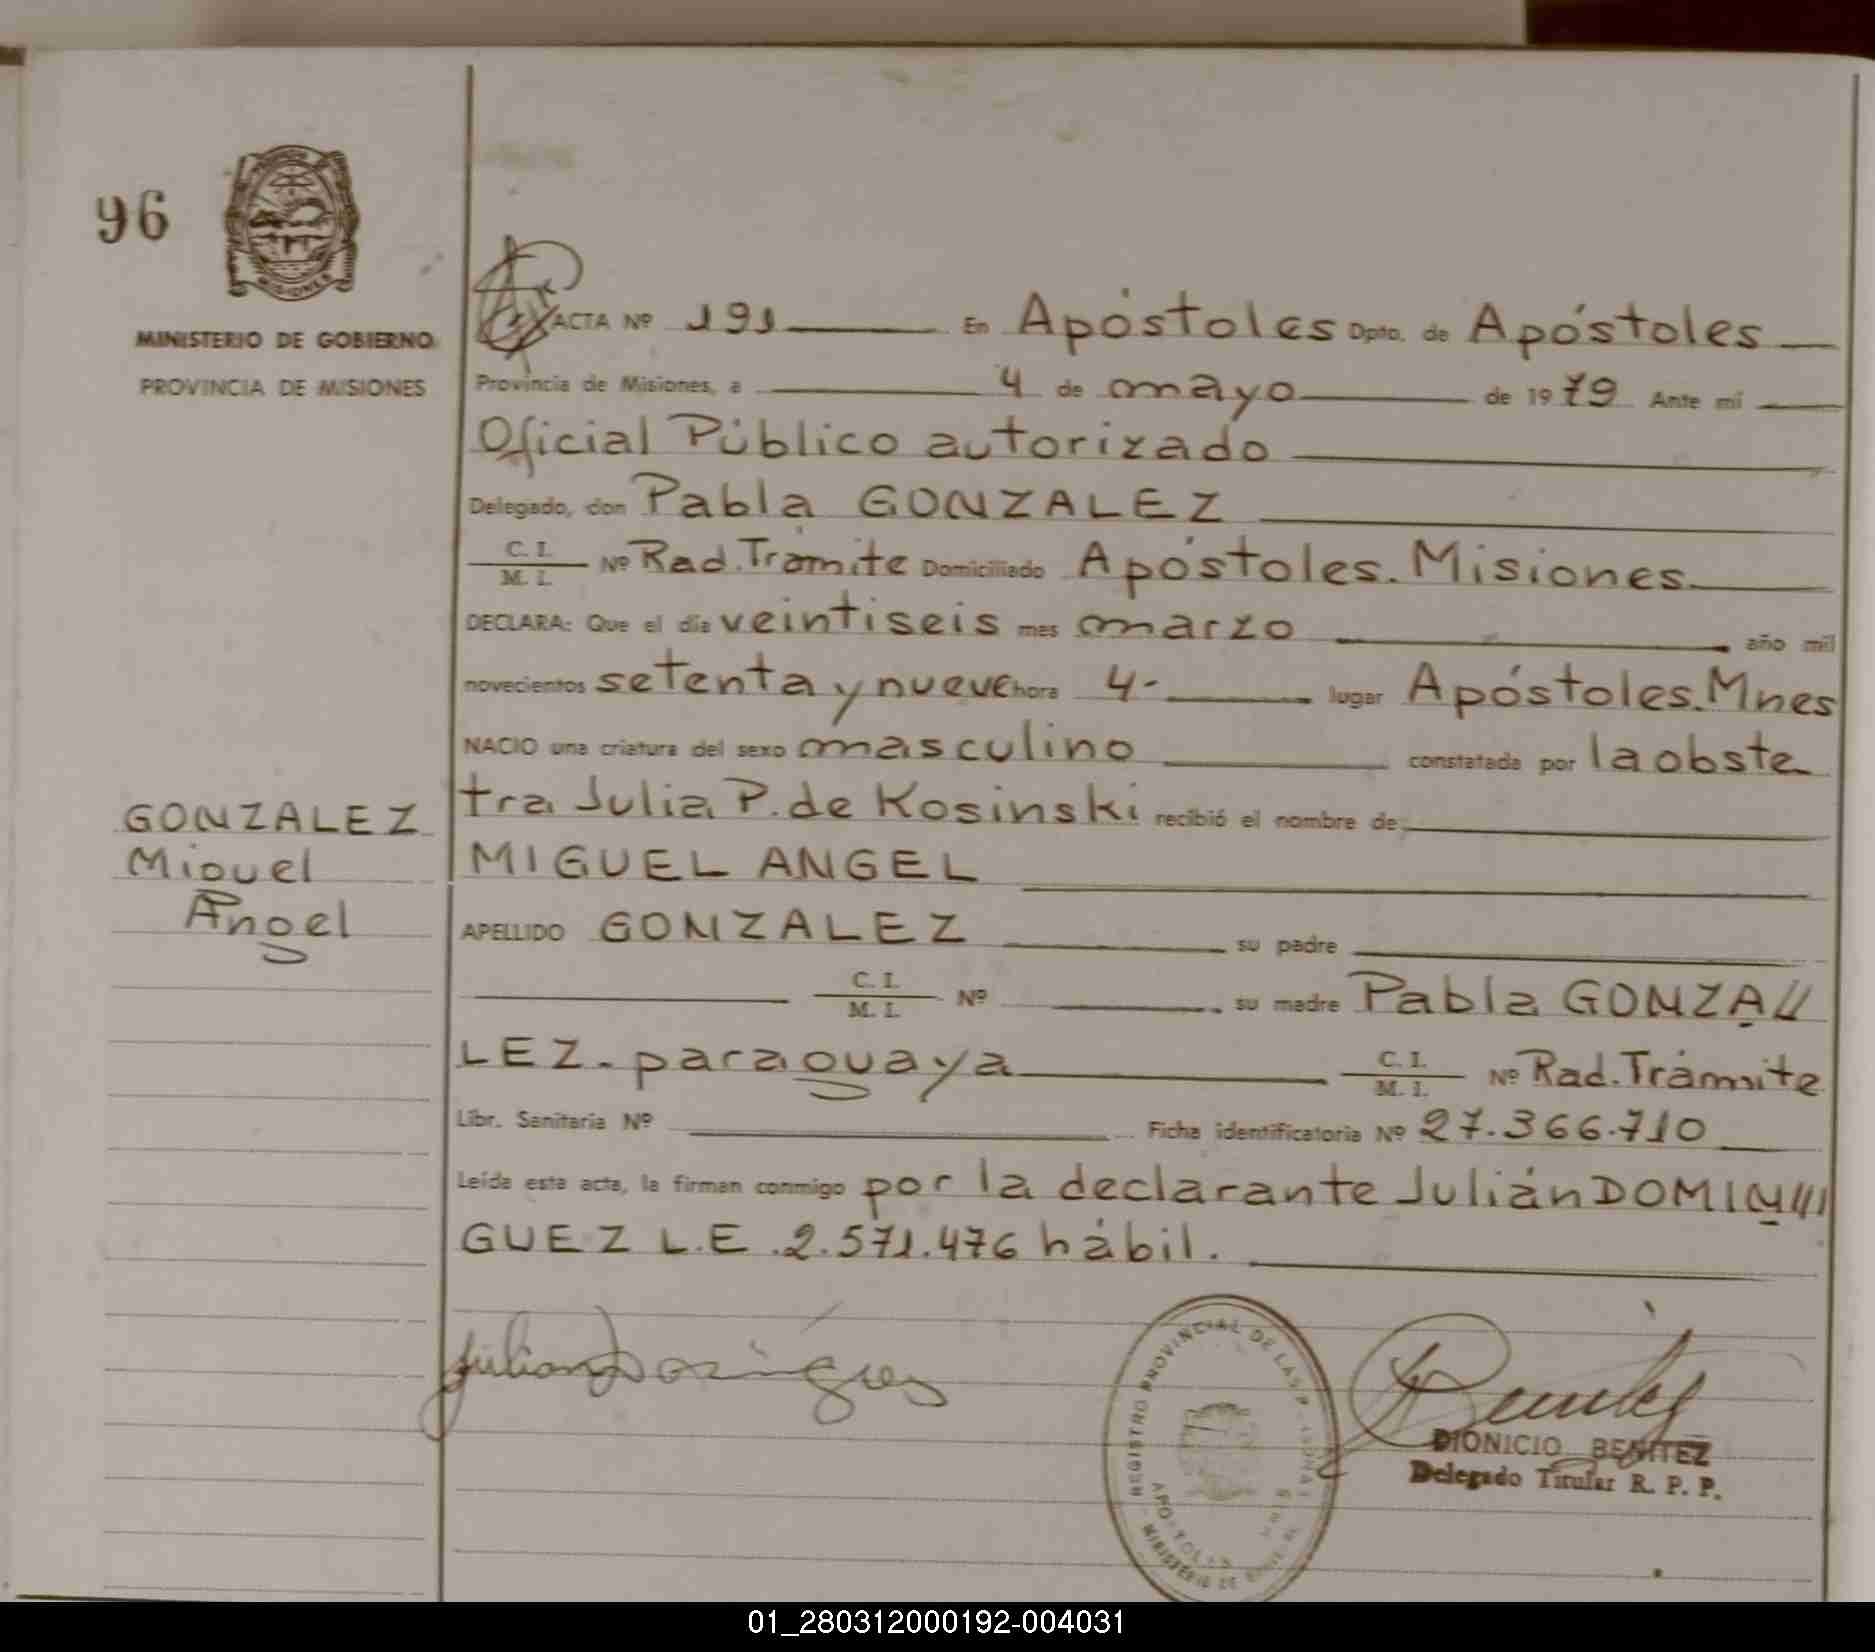 96
MISIONES
MINISTERIO DE GOBIERNO
PROVINCIA DE MISIONES
GONZALEZ
Miguel
Angel
ACTA Nº 191 En Apóstoles Dpto. de Apóstoles
Provincia de Misiones, a 4 de mayo de 1979 Ante mí
Oficial Público autorizado
Delegado, don Pabla GONZALEZ
C. I.
M. I. Nº Rad. Trámite Domiciliado Apóstoles. Misiones
DECLARA: Que el día veintiseis mes marzo año mil
novecientos setenta y nueve hora 4- lugar Apóstoles. Mnes
NACIO una criatura del sexo masculino constatada por la obste
tra Julia P. de Kosinski recibió el nombre de:
MIGUEL ANGEL
APELLIDO GONZALEZ su padre
C. I.
M. I. Nº su madre Pabla GONZA//
LEZ - paraguaya C. I.
M. I. Nº Rad. Trámite
Libr. Sanitaria Nº Ficha identificatoria Nº 27.366.710
Leída esta acta, la firman conmigo por la declarante Julián DOMIN///
GUEZ L.E. 2.571.476 hábil.
REGISTRO PROVINCIAL DE LAS P
APOSTOLES
MINISTERIO DE
DIONICIO BENITEZ
Delegado Titular R. P. P.
01_280312000192-004031